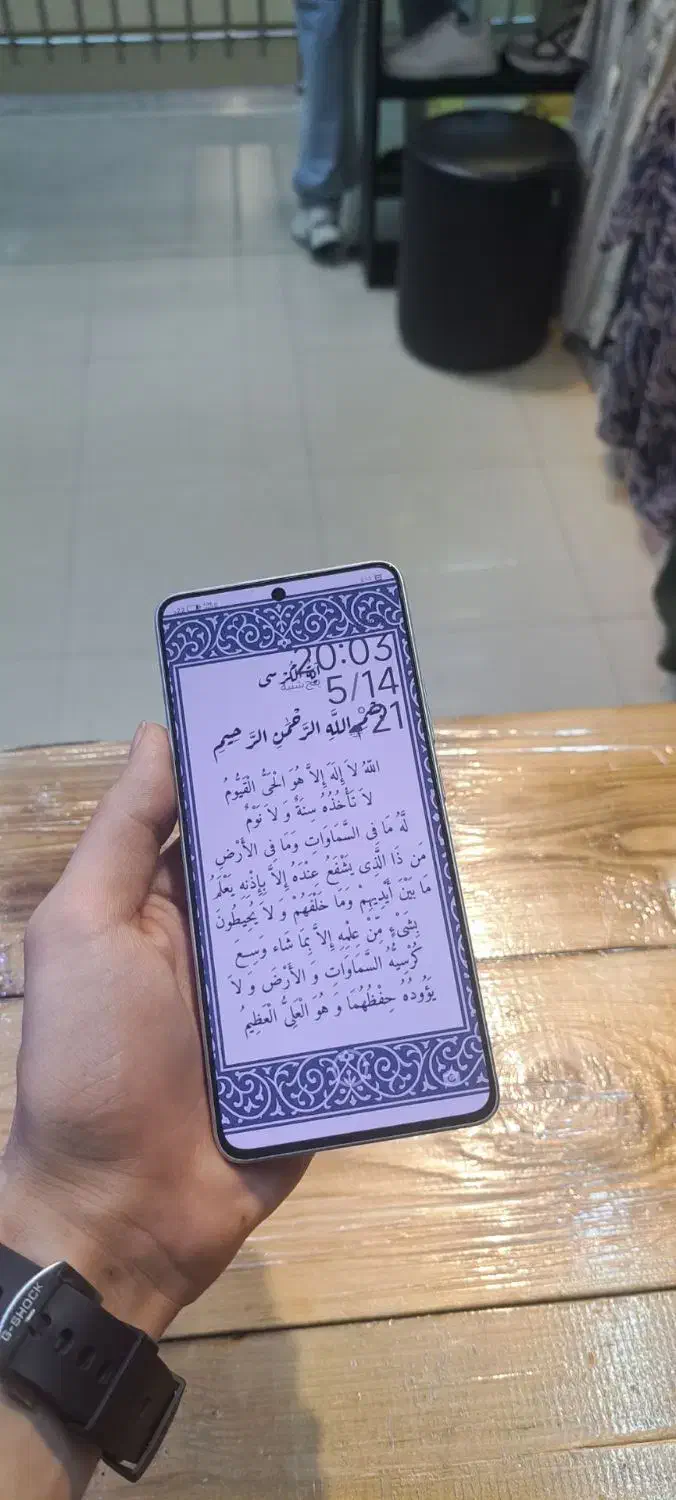 20:03
5/14
21
پنج‌شنبه
آیة الکُرسی
بِسْمِ اللَّهِ الرَّحْمٰنِ الرَّحِیمِ
اللّهُ لاَ إِلَهَ إِلاَّ هُوَ الْحَیُّ الْقَیُّومُ
لاَ تَأْخُذُهُ سِنَةٌ وَ لاَ نَوْمٌ
لَّهُ مَا فِی السَّمَاوَاتِ وَمَا فِی الأَرْضِ
مَن ذَا الَّذِی یَشْفَعُ عِنْدَهُ إِلاَّ بِإِذْنِهِ یَعْلَمُ
مَا بَیْنَ أَیْدِیهِمْ وَمَا خَلْفَهُمْ وَ لاَ یُحِیطُونَ
بِشَیْءٍ مِّنْ عِلْمِهِ إِلاَّ بِمَا شَاء وَسِعَ
کُرْسِیُّهُ السَّمَاوَاتِ وَ الأَرْضَ وَ لاَ
یَؤُودُهُ حِفْظُهُمَا وَ هُوَ الْعَلِیُّ الْعَظِیمُ
G-SHOCK